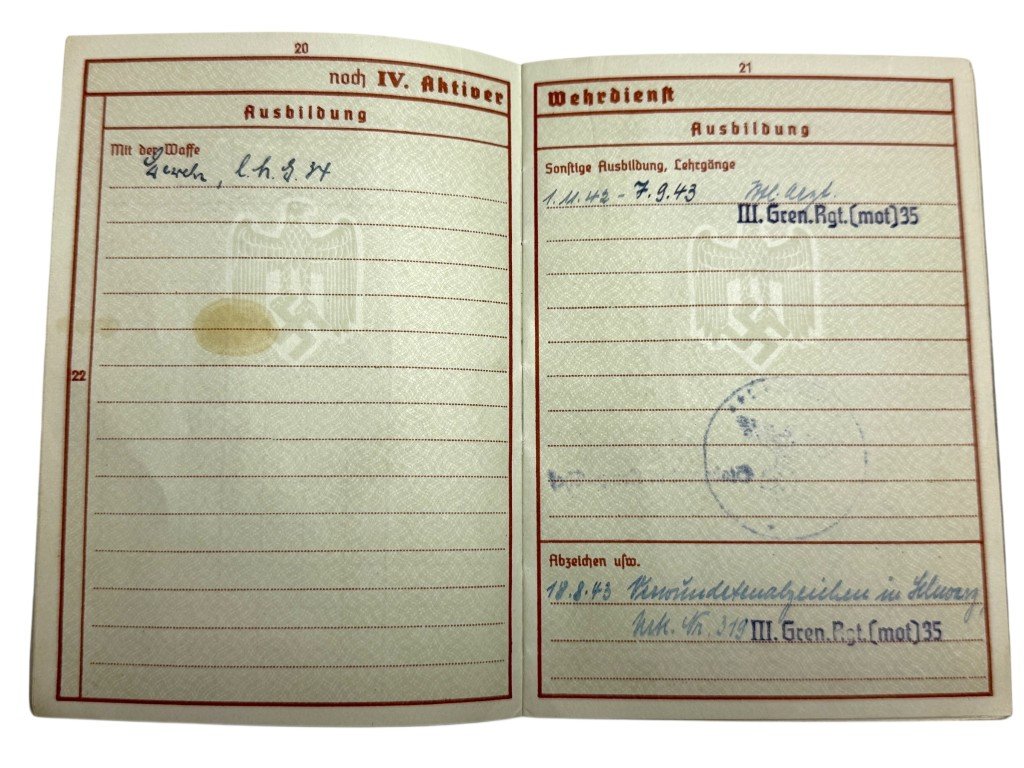 20
noch IV. Aktiver
Ausbildung
Mit der Waffe
Gewehr, l.M.G. 34
22
21
Wehrdienst
Ausbildung
Sonstige Ausbildung, Lehrgänge
1.11.42 - 7.9.43
III. Gren.Rgt.(mot)35
Abzeichen usw.
18.8.43 Verwundetenabzeichen in Schwarz,
Urk. Nr. 319 III. Gren.Rgt.(mot)35